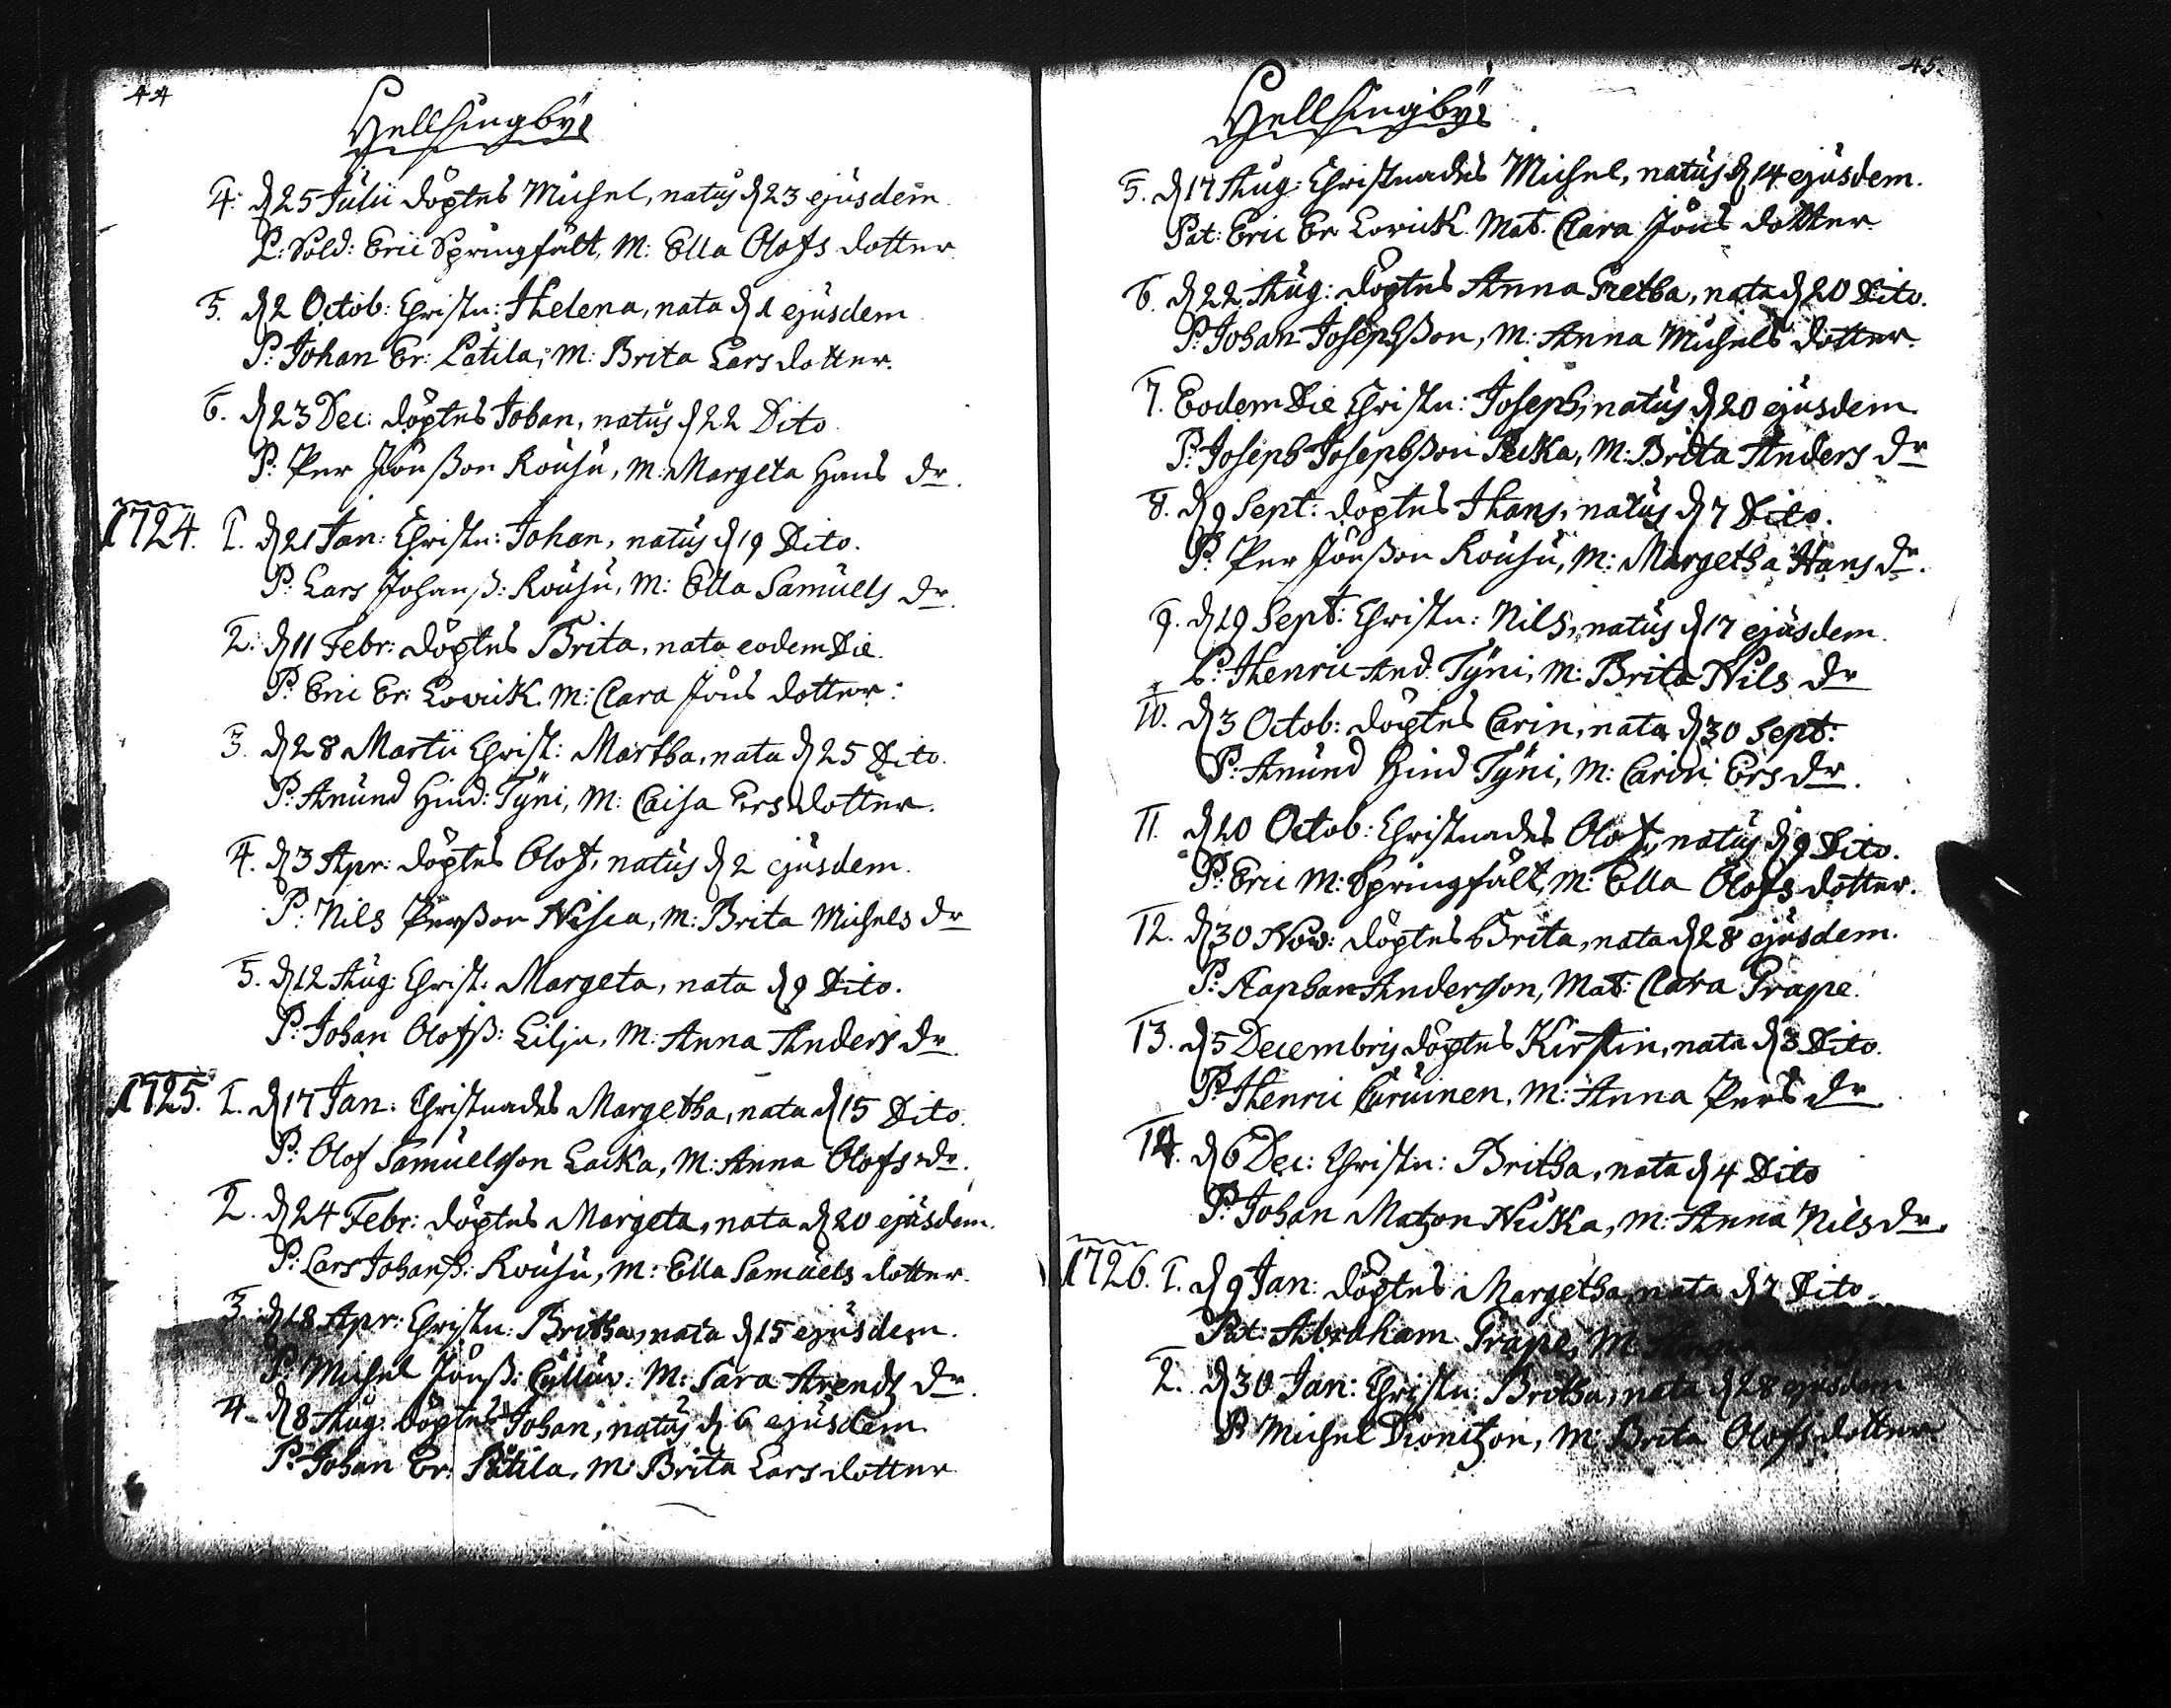 44
Hellsingby
4. d 25 Julii döptes Michel, natus d 23 ejusdem.
P: Sold: Eric Springfält, M: Ella Olofs dotter.
5. d 2 Octob: Christn: Helena, nata d 1 ejusdem.
P: Johan Er: Patila, M: Brita Lars dotter.
6. d 23 Dec: döptes Johan, natus d 22 Dito.
P: Per Jönßon Rousu, M: Margeta Hans dr.
1724. 1. d 21 Jan: Christn: Johan, natus d 19 Dito.
P: Lars Johanß: Rousu, M: Ella Samuels dr.
2. d 11 Febr: döptes Brita, nata eodem Die.
P: Eric Er: Lovick. M: Clara Jöns dotter.
3. d 28 Martii Christ: Martha, nata d 25 Dito.
P: Amund Hind: Tÿni, M: Caisa Ers dotter.
4. d 3 Apr: döptes Olof, natus d 2 ejusdem.
P: Nils Perßon, M: Brita Michels dr
5. d 12 Aug: Christ: Margeta, nata d 9 Dito.
P: Johan Olofß: Lilja, M: Anna Anders dr.
1725. 1. d 17 Jan: Christnades Margetha, nata d 15 Dito.
P: Olof Samuelsson Lacka, M: Anna Olofs dr.
2. d 24 Febr: döptes Margeta, nata d 20 ejusdem.
P: Lars Johanß: Rousu, M: Ella Samuels dotter.
3. d 18 Apr: Christn: Britha, nata d 15 ejusdem.
P: Michel Jönß: M: Sara Arendz dr.
4. d 8 Aug: döptes Johan, natus d 6 ejusdem.
P: Johan Er: Patila, M: Brita Lars dotter
45.
Hellsingby
5. d 17 Aug: Christnades Michel, natus d 14 ejusdem.
Pat: Eric Er Lovick. Mat. Clara Jöns dotter.
6. d 22 Aug: döptes Anna Gretha, nata d 20 Dito.
P: Johan Josephßon, M: Anna Michels dotter.
7. Eodem Die Christn: Joseph, natus d 20 ejusdem.
P: Joseph Josephßon Pecka, M: Brita Anders dr
8. d 9 Sept: döptes Hans, natus d 7 Dito.
P: Per Jönßon Rousu, M: Margetha Hans dr.
9. d 19 Sept: Christn: Nils, natus d 17 ejusdem.
P: Henric And: Tÿni, M: Brita Nils dr
10. d 3 Octob: döptes Carin, nata d 30 Sept:
P: Amund Hind Tÿni, M: Carin Ers dr.
11. d 10 Octob: Christnades Olof, natus d 9 Dito.
P: Eric M: Springfält, M: Ella Olofs dotter.
12. d 30 Nov: döptes Brita, nata d 28 ejusdem.
P: Staphan Andersson, Mat: Clara Grape.
13. d 5 Decembris döptes Kirstin, nata d 3 Dito.
P: Henric, M: Anna Pers dr
14. d 6 Dec: Christn: Britha, nata d 4 Dito
P: Johan Matzon Nicka, M: Anna Nils dr.
1726. 1. d 9 Jan: döptes Margetha, nata d 7 Dito.
Pat: Abraham Grape, M: Anna
2. d 30 Jan: Christn: Britha, nata d 28 ejusdem
P: Michel Dionitzon, M: Brita Olofs dotter